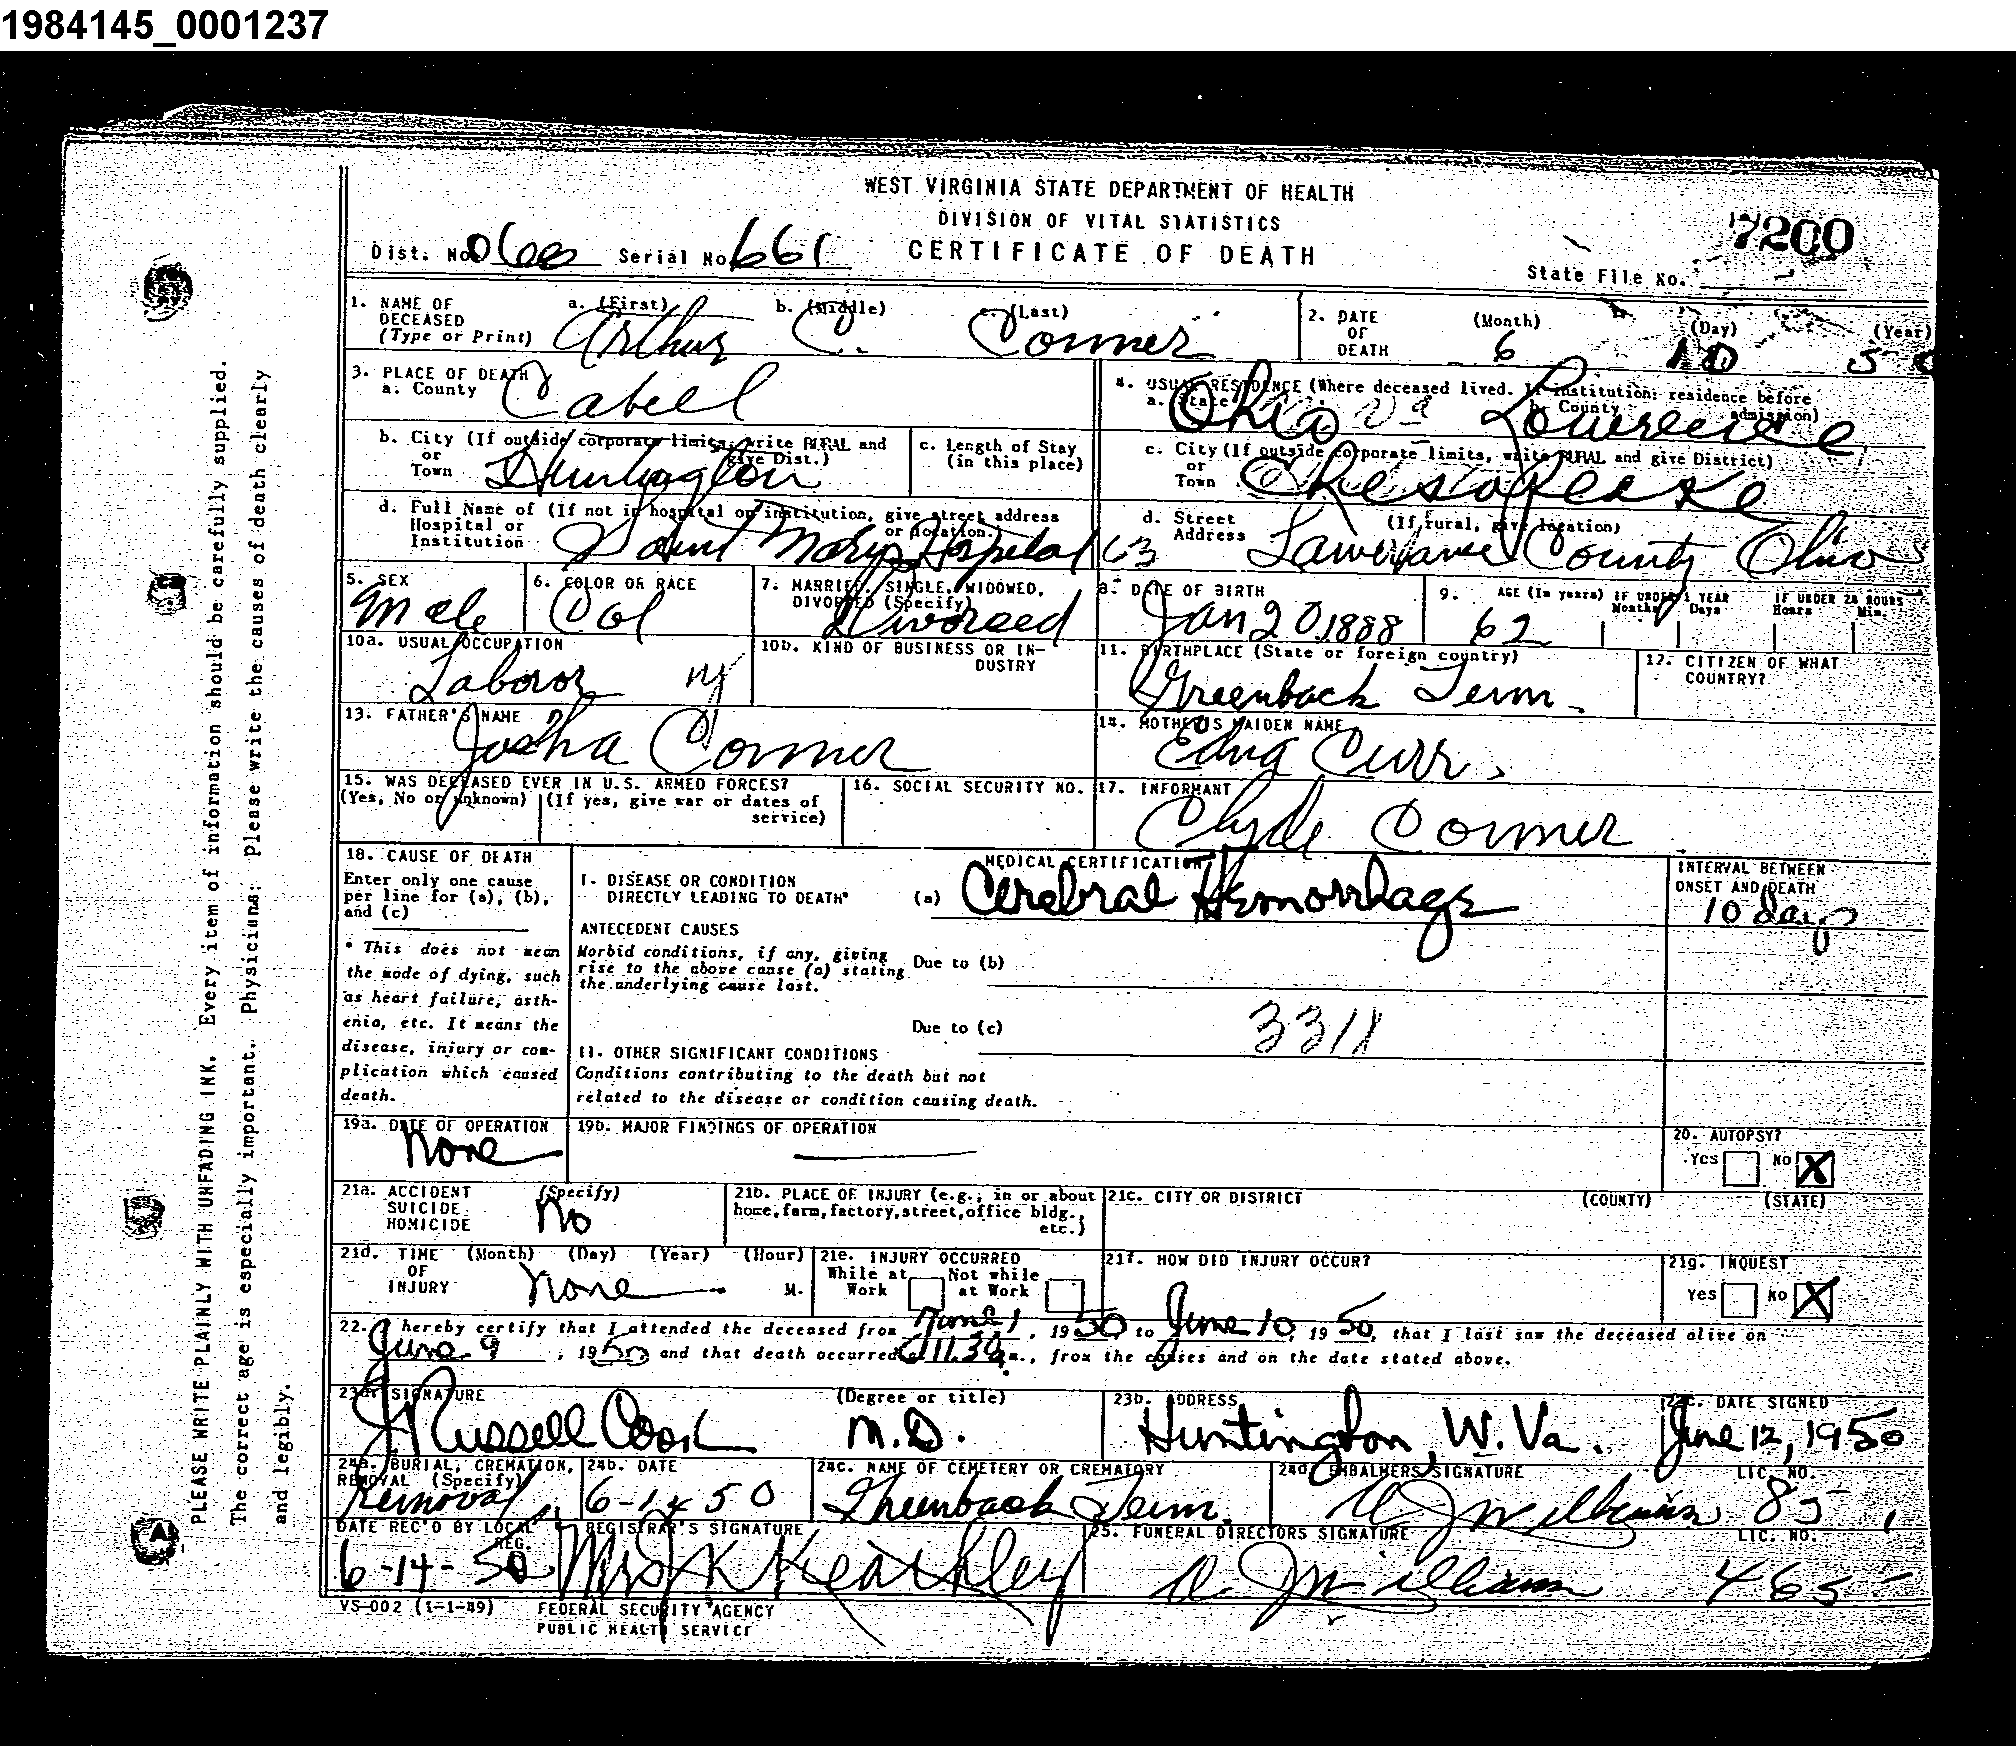 1984145_0001237
WEST VIRGINIA STATE DEPARTMENT OF HEALTH
DIVISION OF VITAL STATISTICS
CERTIFICATE OF DEATH
7200
Dist. No. Serial No. 661
State File No.
1. NAME OF DECEASED (Type or Print) a. (First) b. (Middle) c. (Last)
Arthur C. Conner
2. DATE OF DEATH (Month) (Day) (Year)
6 10 50
3. PLACE OF DEATH
a. County Cabell
4. USUAL RESIDENCE (Where deceased lived. If institution: residence before admission)
a. State Ohio b. County Lowrence
b. City (If outside corporate limits, write RURAL and give Dist.) or Town Huntington
c. Length of Stay (in this place)
c. City (If outside corporate limits, write RURAL and give District) or Town Chesapeake
d. Full Name of (If not in hospital or institution, give street address or location.) Hospital or Institution Saint Marys Hospital
d. Street Address (If rural, give location)
63 County Ohio
5. SEX Male
6. COLOR OR RACE Col
7. MARRIED, SINGLE, WIDOWED, DIVORCED (Specify) Divorced
8. DATE OF BIRTH Jan 20, 1888
9. AGE (In years) IF UNDER 1 YEAR Months Days IF UNDER 24 HOURS Hours Min.
62
10a. USUAL OCCUPATION Labor
10b. KIND OF BUSINESS OR INDUSTRY
11. BIRTHPLACE (State or foreign country) Greenback Tenn.
12. CITIZEN OF WHAT COUNTRY?
13. FATHER'S NAME Josha Conner
14. MOTHER'S MAIDEN NAME Edna
15. WAS DECEASED EVER IN U.S. ARMED FORCES?
(Yes, No or unknown) (If yes, give war or dates of service)
16. SOCIAL SECURITY NO.
17. INFORMANT Clyde Conner
18. CAUSE OF DEATH
Enter only one cause per line for (a), (b), and (c)
* This does not mean the mode of dying, such as heart failure, asthenia, etc. It means the disease, injury or complication which caused death.
MEDICAL CERTIFICATION
I. DISEASE OR CONDITION DIRECTLY LEADING TO DEATH* (a) Cerebral Hemorrhage
INTERVAL BETWEEN ONSET AND DEATH
10 days
ANTECEDENT CAUSES
Morbid conditions, if any, giving rise to the above cause (a) stating the underlying cause last. Due to (b)
Due to (c)
331X
II. OTHER SIGNIFICANT CONDITIONS
Conditions contributing to the death but not related to the disease or condition causing death.
19a. DATE OF OPERATION None
19b. MAJOR FINDINGS OF OPERATION
20. AUTOPSY?
Yes No X
21a. ACCIDENT SUICIDE HOMICIDE (Specify) No
21b. PLACE OF INJURY (e.g., in or about home, farm, factory, street, office bldg., etc.)
21c. CITY OR DISTRICT (COUNTY) (STATE)
21d. TIME OF INJURY (Month) (Day) (Year) (Hour) None M.
21e. INJURY OCCURRED
While at Work Not while at Work
21f. HOW DID INJURY OCCUR?
21g. INQUEST
Yes No X
22. I hereby certify that I attended the deceased from June 1, 1950 to June 10, 1950, that I last saw the deceased alive on
June 9, 1950 and that death occurred 11:30 a.m., from the causes and on the date stated above.
23a. SIGNATURE (Degree or title)
J Russell Cook M.D.
23b. ADDRESS Huntington, W. Va.
23c. DATE SIGNED June 12, 1950
24a. BURIAL, CREMATION, REMOVAL (Specify) Removal
24b. DATE 6-14 50
24c. NAME OF CEMETERY OR CREMATORY Greenback Tenn.
24d. EMBALMERS SIGNATURE LIC. NO.
DATE REC'D BY LOCAL REG. 6-14-50
REGISTRAR'S SIGNATURE
25. FUNERAL DIRECTORS SIGNATURE LIC. NO.
465
VS-002 (1-1-49) FEDERAL SECURITY AGENCY
PUBLIC HEALTH SERVICE
PLEASE WRITE PLAINLY WITH UNFADING INK. Every item of information should be carefully supplied.
The correct age is especially important. Physicians: please write the causes of death clearly
and legibly.